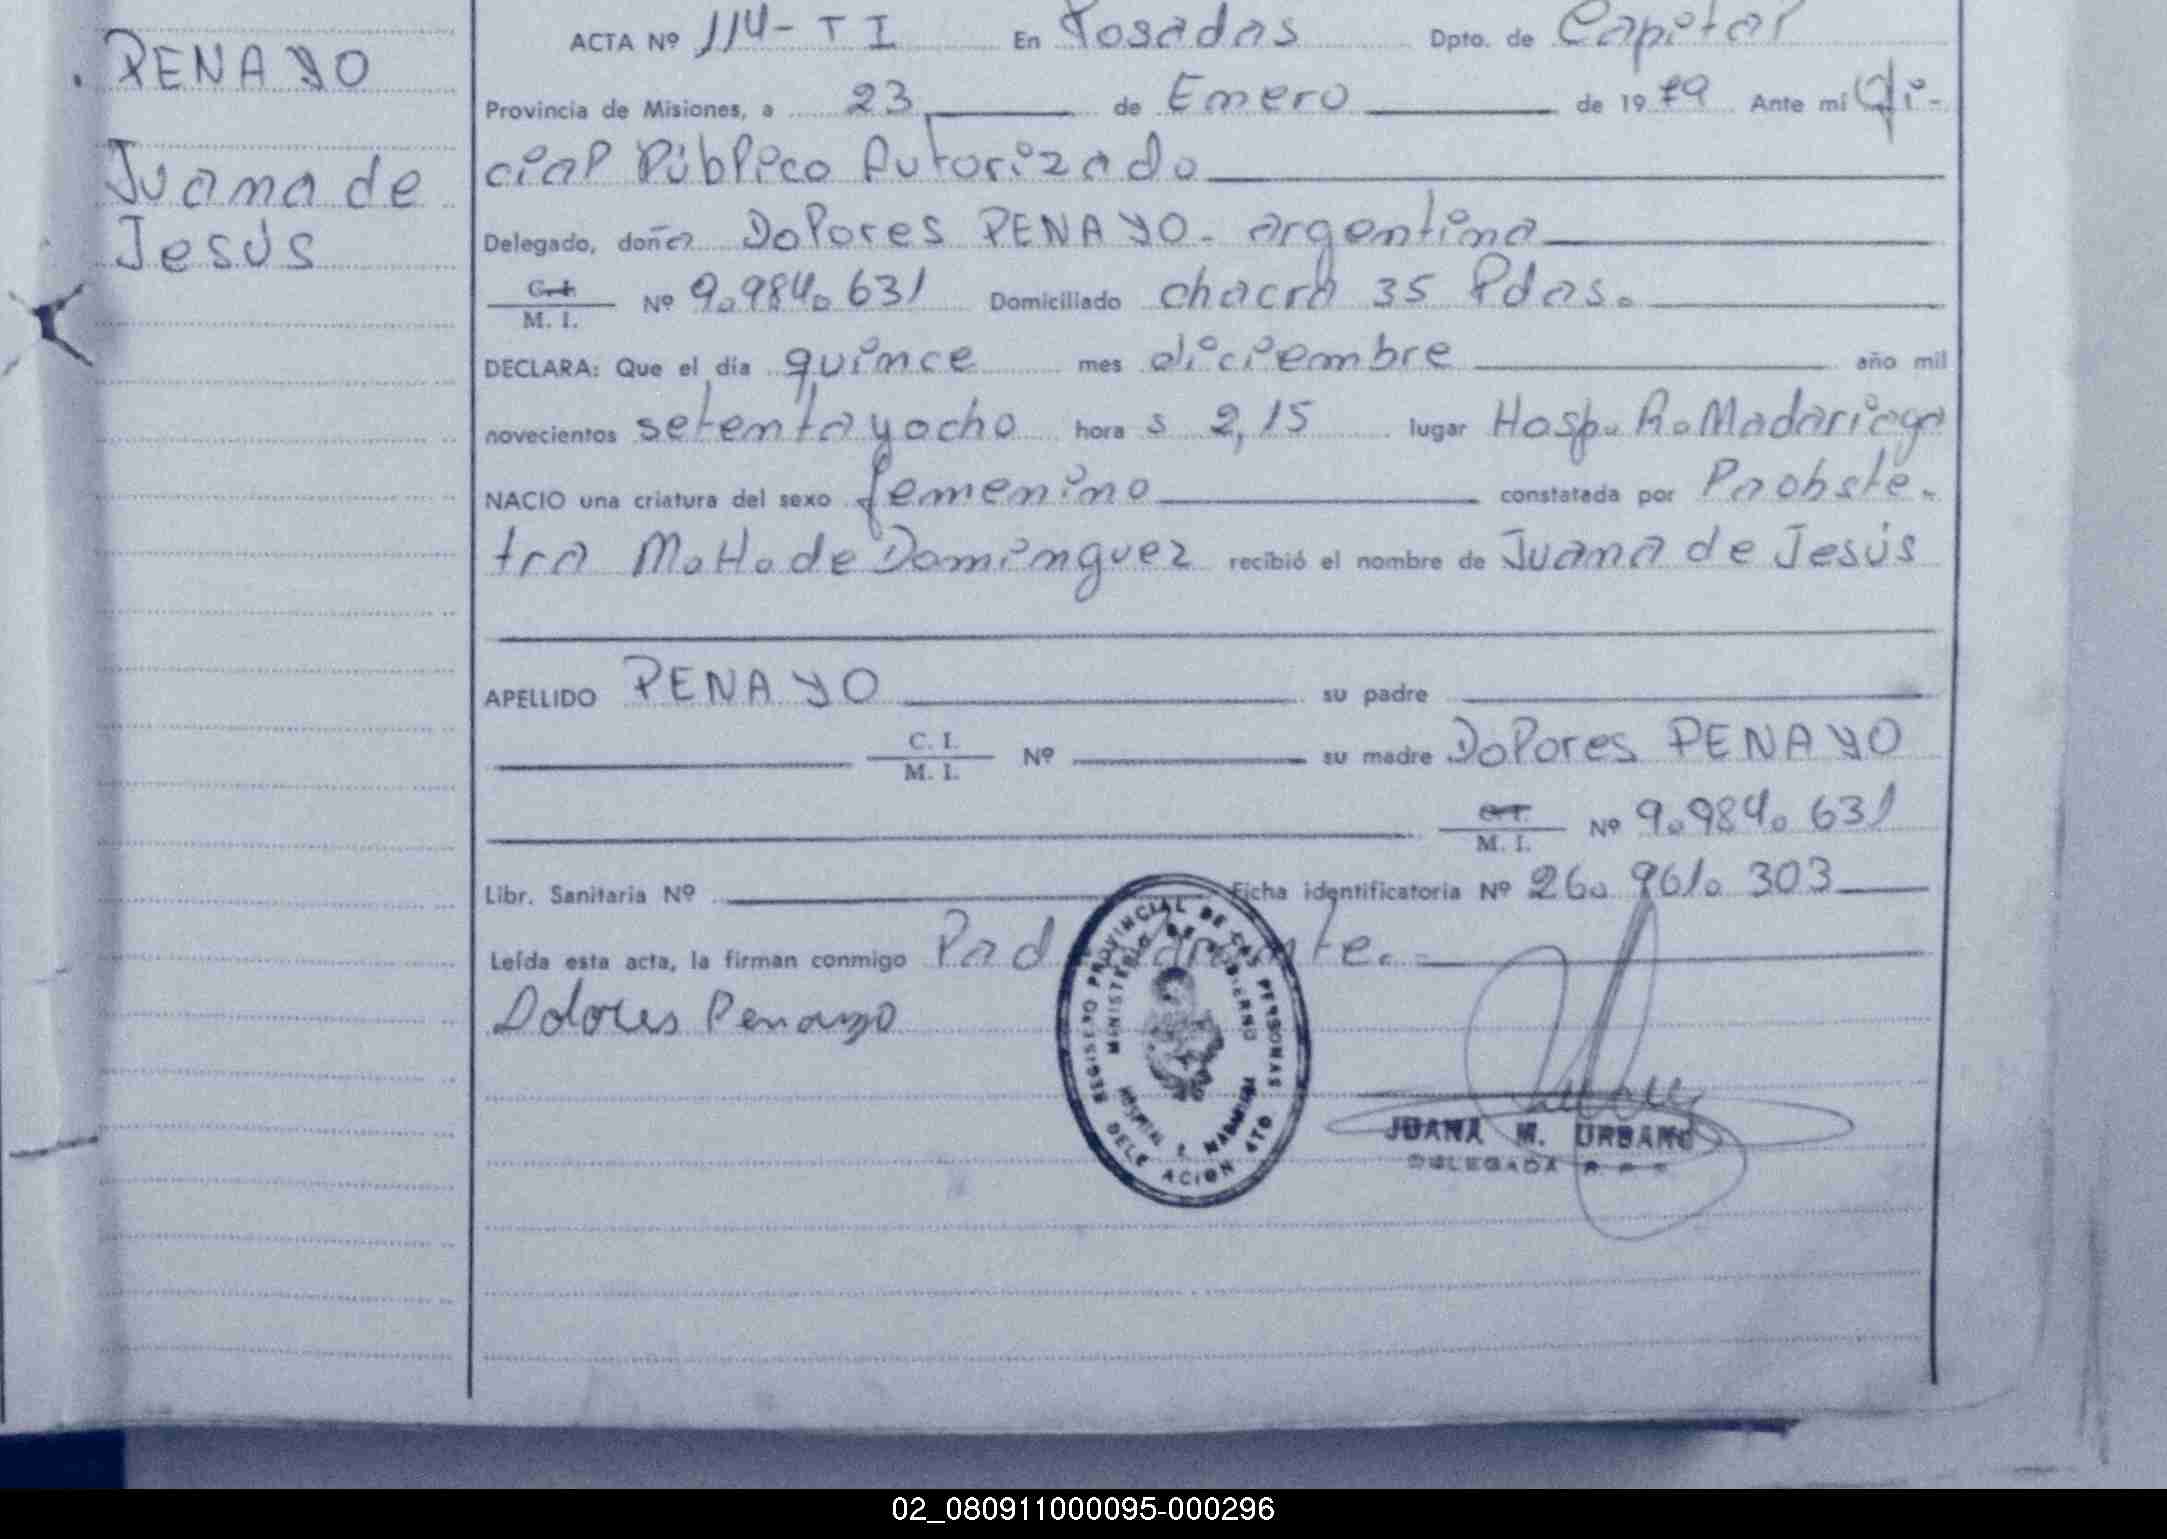 PENAYO
Juana de
Jesús
ACTA Nº 114- T I En Posadas Dpto. de Capital
Provincia de Misiones, a 23 de Enero de 1979 Ante mí Ofi-
cial Público Autorizado
Delegado, doña Dolores PENAYO. argentina
C.I. M. I. Nº 9.984.631 Domiciliado chacra 35 Pdas.
DECLARA: Que el día quince mes diciembre año mil
novecientos setenta y ocho hora s 2,15 lugar Hosp. R. Madariaga
NACIO una criatura del sexo femenino constatada por Paobste-
tra M.H. de Dominguez recibió el nombre de Juana de Jesús
APELLIDO PENAYO su padre
C. I. M. I. Nº su madre Dolores PENAYO
C.I. M. I. Nº 9.984.631
Libr. Sanitaria Nº Ficha identificatoria Nº 26.961.303
Leída esta acta, la firman conmigo
Dolores Penayo
REGISTRO PROVINCIAL DE LAS PERSONAS
MINISTERIO DE GOBIERNO
HOSPITAL R. MADARIAGA
DELEGACION 4TO
JUANA M. URBANO
DELEGADA R. P. P.
02_080911000095-000296